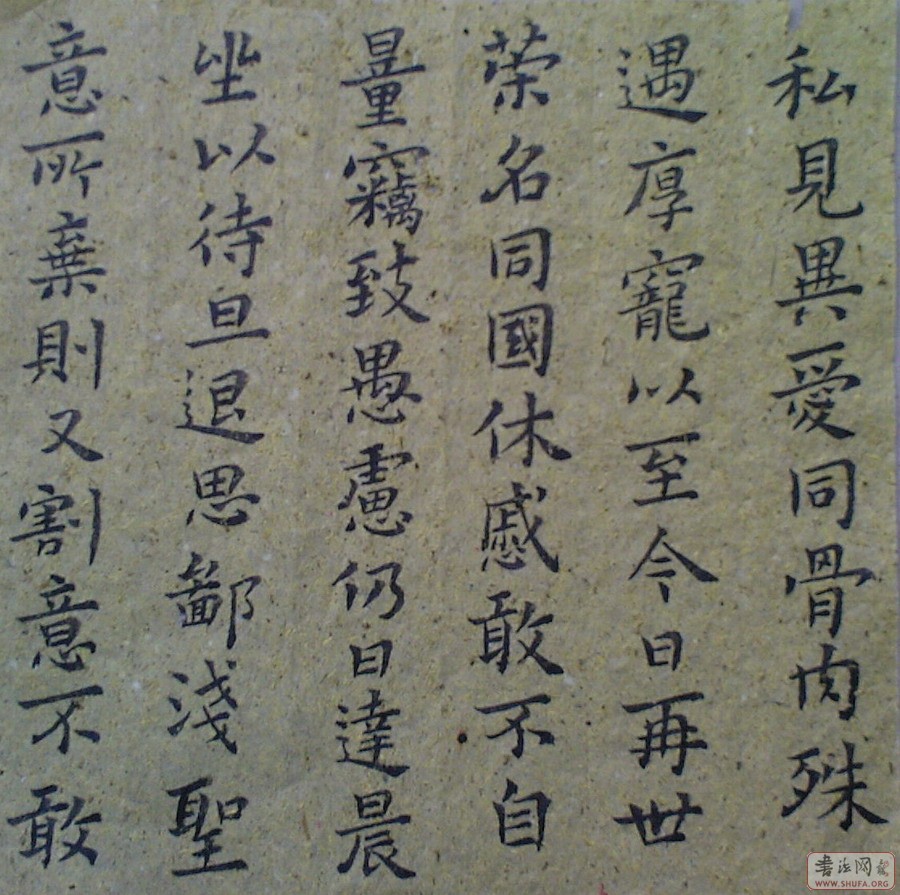 私見異愛同骨肉殊
遇厚寵以至今日再世
荣名同國休慼敢不自
量竊致愚慮仍日達晨
坐以待旦退思鄙淺聖
意所棄則又割意不敢
書法网
WWW.SHUFA.ORG